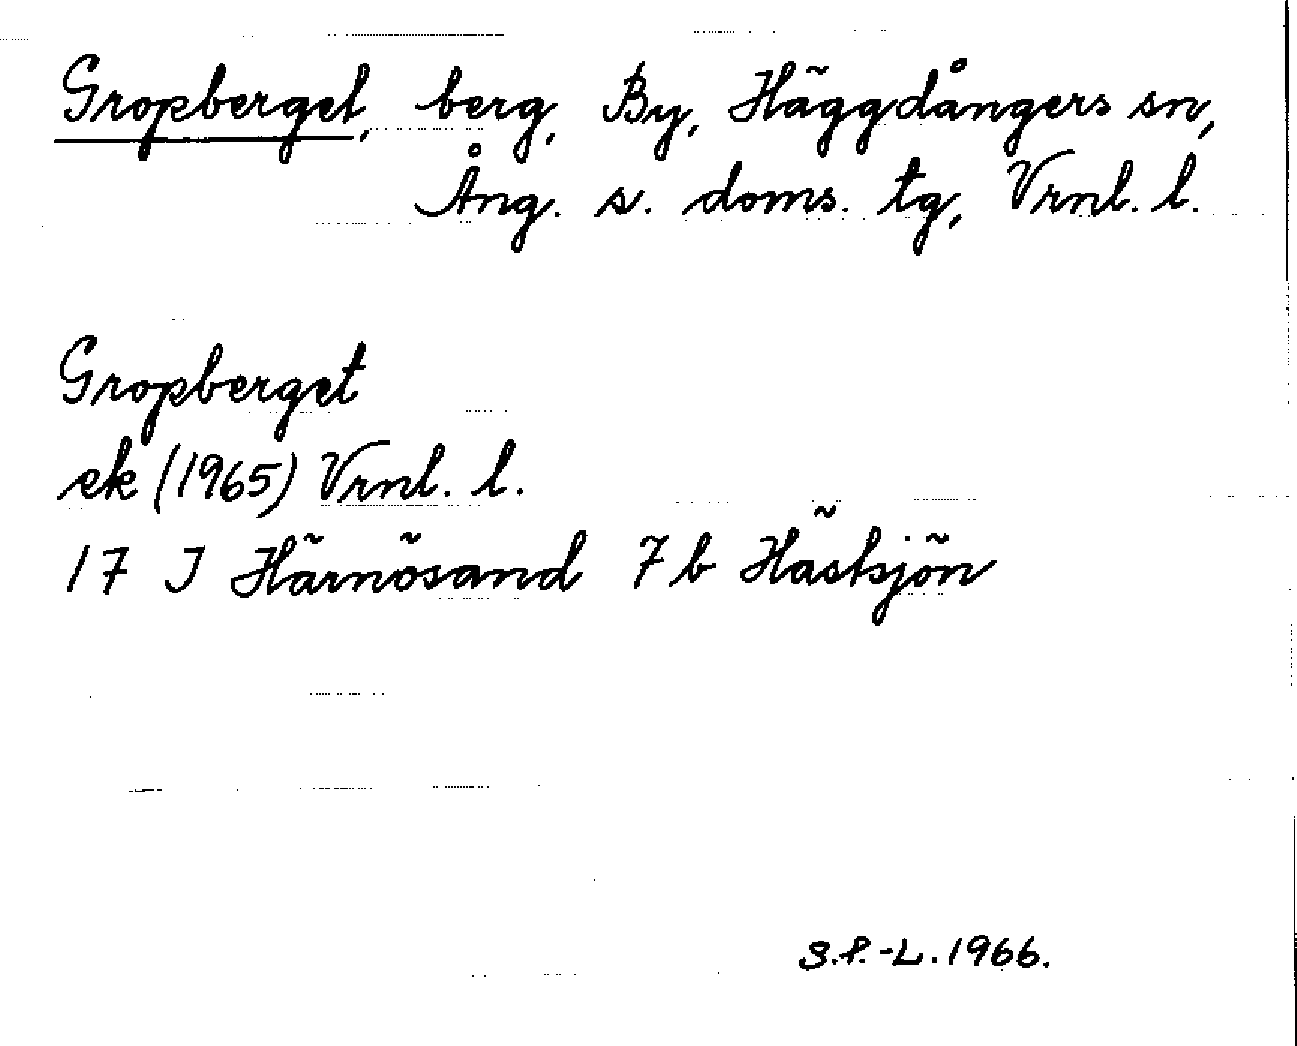 Gropberget, berg, By, Häggdångers sn,
Ång. s. doms. tg, Vrnl. l.
Gropberget
ek (1965) Vrnl. l.
17 I Härnösand 7b Hässjön
S.P.-L. 1966.